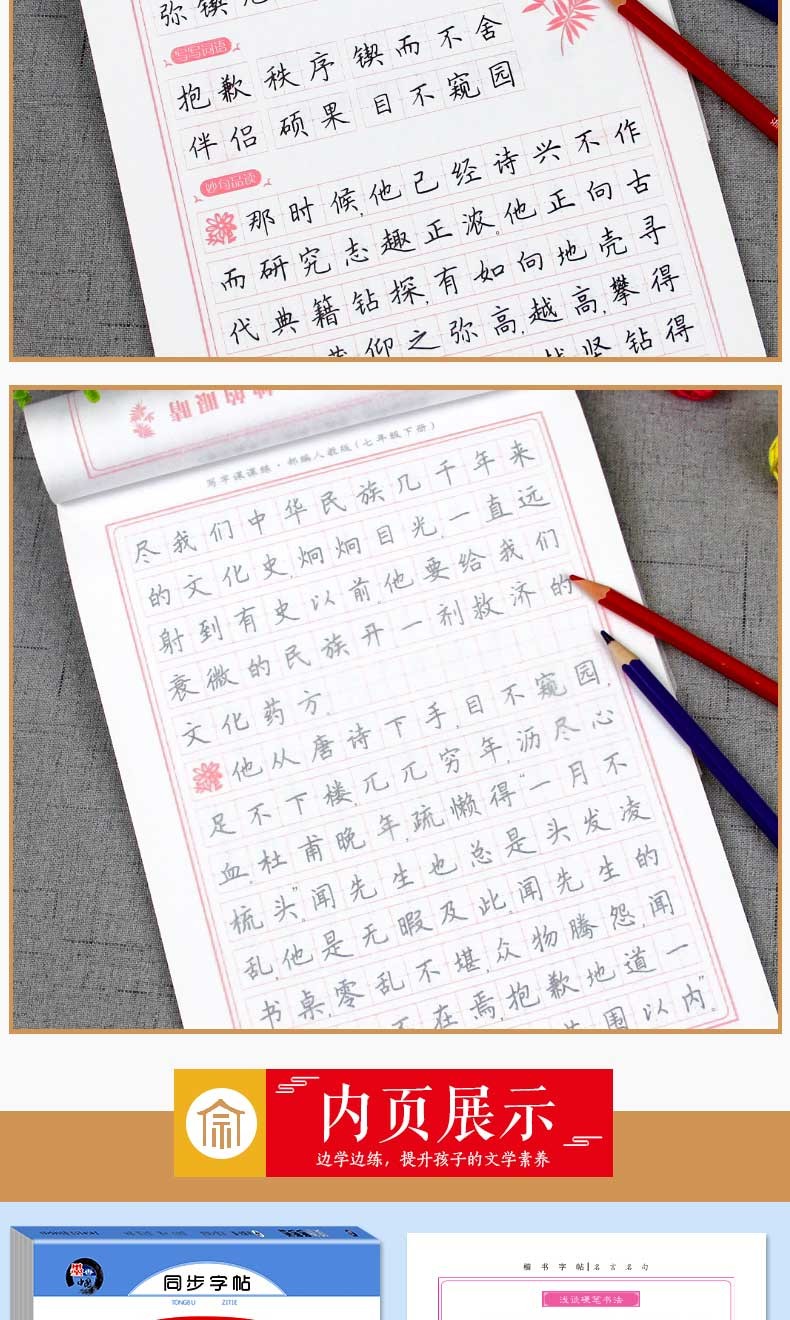 弥锲
写写词语
抱歉 秩序 锲而不舍
伴侣 硕果 目不窥园
妙句品读
那时候,他已经诗兴不作
而研究志趣正浓。他正向古
代典籍钻探,有如向地壳寻
仰之弥高,越高,攀得
坚钻得
写字课课练·部编人教版(七年级下册)
尽我们中华民族几千年来
的文化史,炯炯目光,一直远
射到有史以前,他要给我们
衰微的民族开一剂救济的
文化药方。
他从唐诗下手,目不窥园,
足不下楼,兀兀穷年,沥尽心
血。杜甫晚年,疏懒得“一月不
梳头”。闻先生也总是头发凌
乱,他是无暇及此。闻先生的
书桌,零乱不堪,众物腾怨,闻
在焉,抱歉地道一
围以内”。
内页展示
边学边练，提升孩子的文学素养
同步字帖
TONGBU ZITIE
楷书字帖|名言名句
浅谈硬笔书法